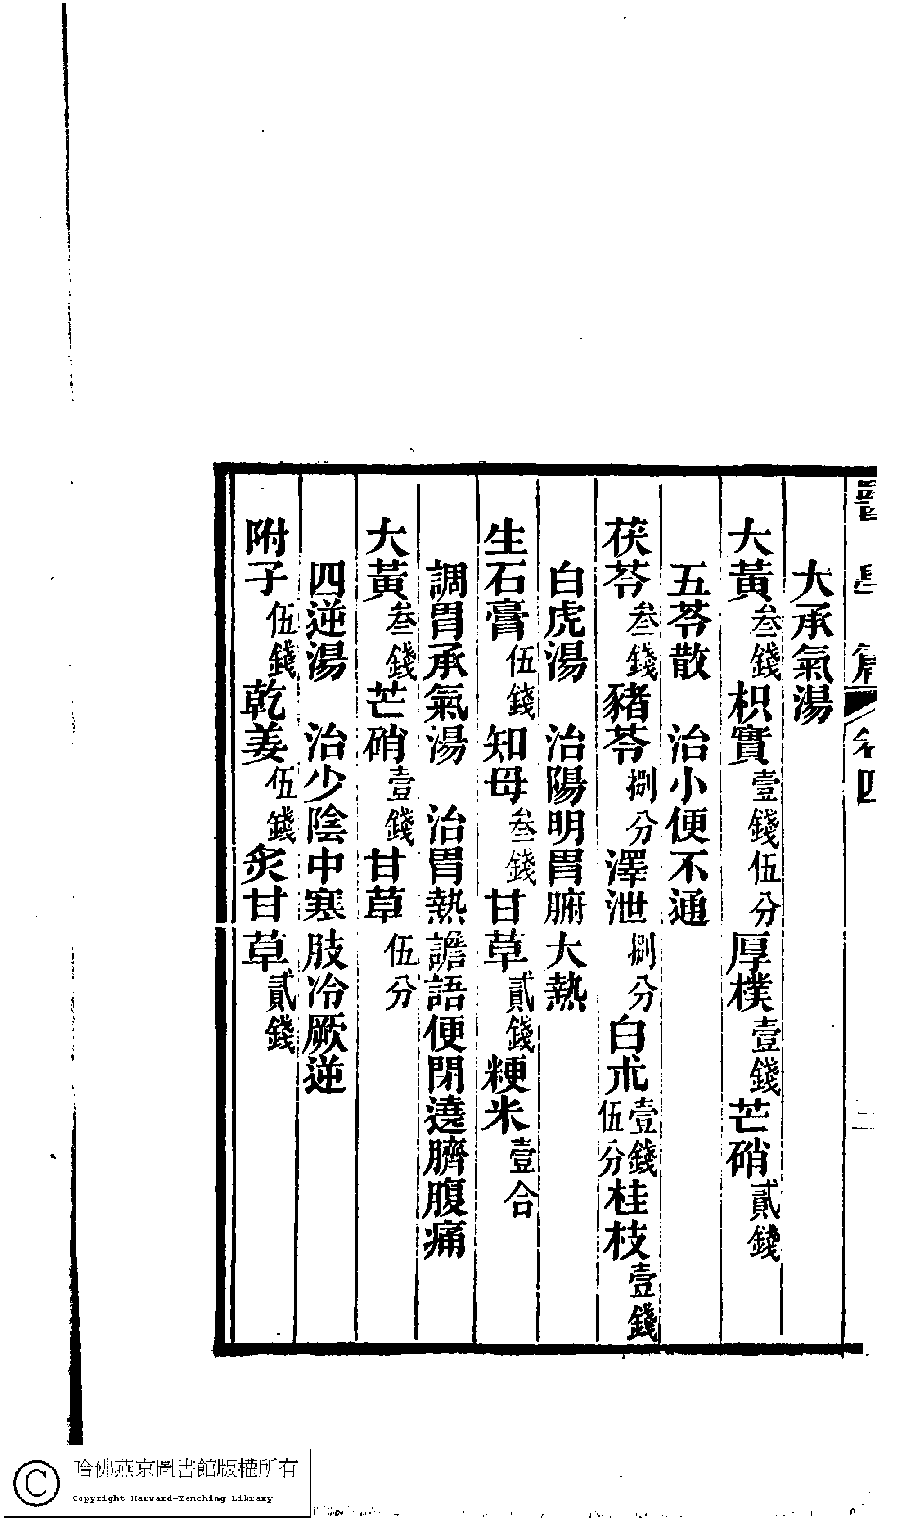 醫學篇 卷四 二
大承氣湯
大黃叁錢枳實壹錢伍分厚樸壹錢芒硝貳錢
五苓散 治小便不通
茯苓叁錢豬苓捌分澤泄捌分白朮壹錢伍分桂枝壹錢
白虎湯 治陽明胃腑大熱
生石膏伍錢知母叁錢甘草貳錢粳米壹合
調胃承氣湯 治胃熱譫語便閉遶臍腹痛
大黃叁錢芒硝壹錢甘草伍分
四逆湯 治少陰中寒肢冷厥逆
附子伍錢乾姜伍錢炙甘草貳錢
哈佛燕京圖書館版權所有
Copyright Harvard-Yenching Library